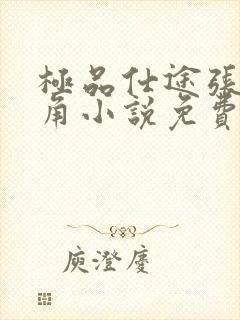 極品仕途張
角小說免費
庾澄慶